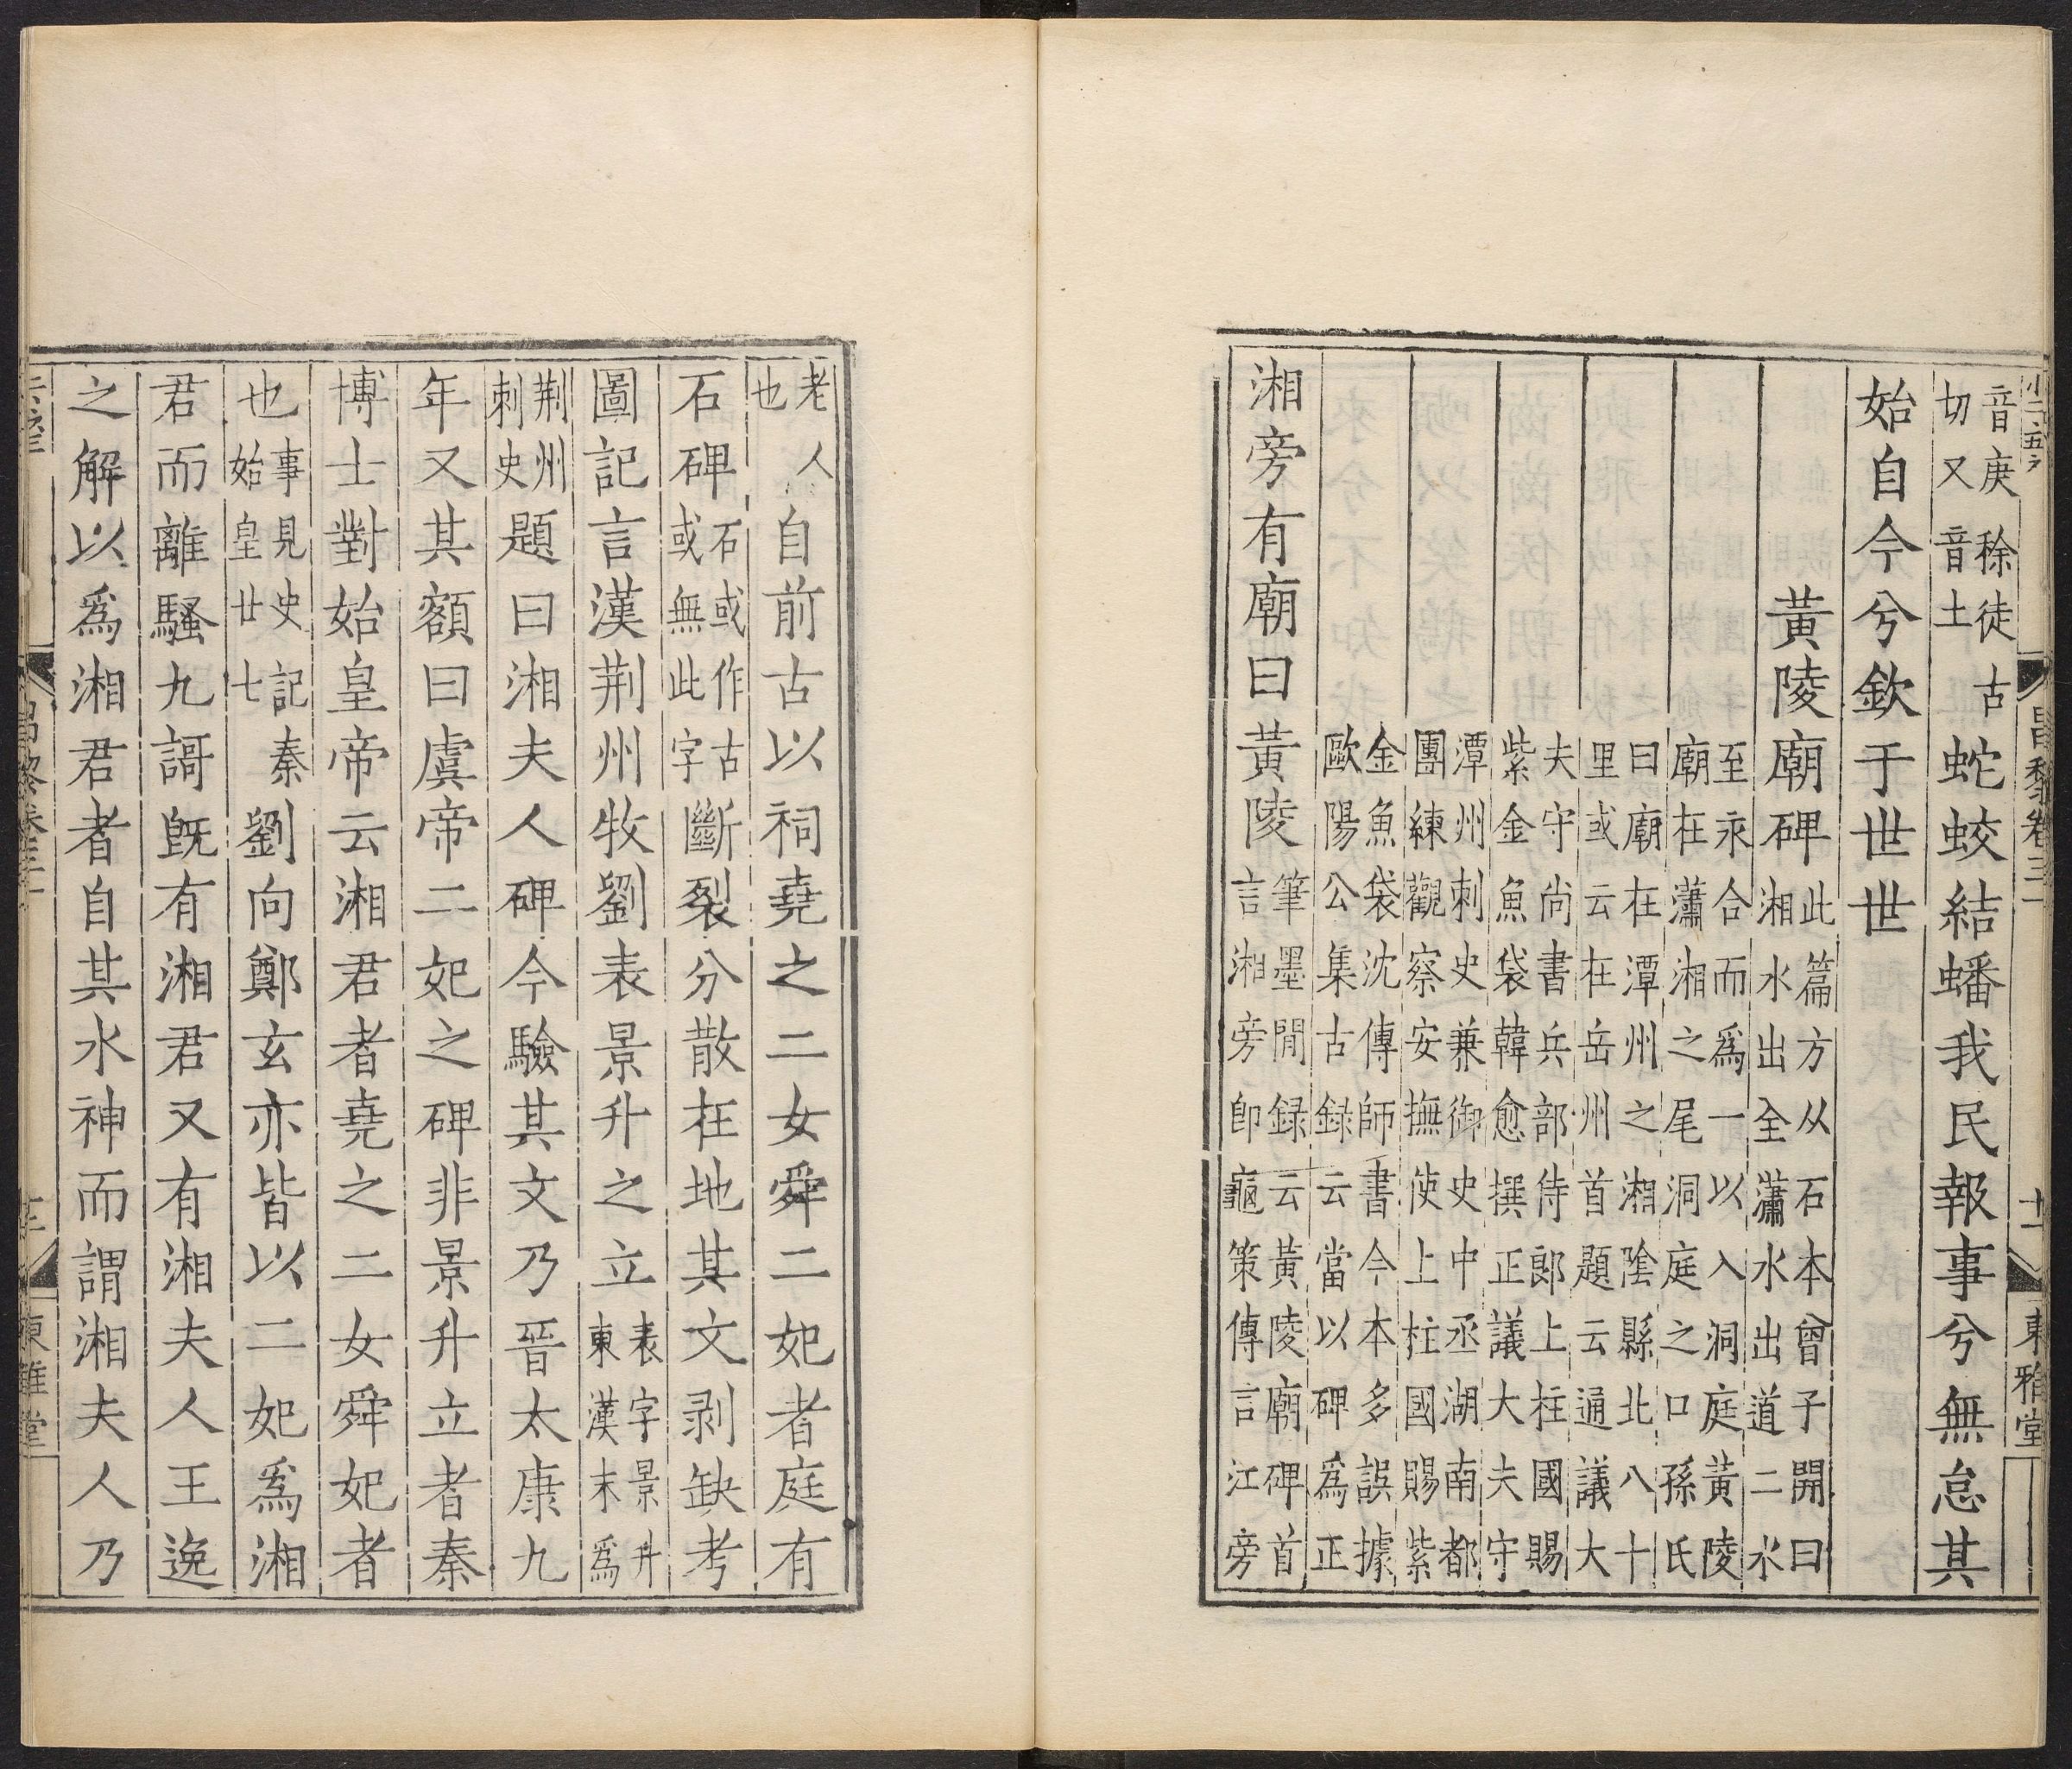 昌黎卷三十一 十一 東雅堂
音庚稌徒古切又音土蛇蛟結蟠我民報事兮無怠其
始自今兮欽于世世
黃陵廟碑此篇方从石本曾子開曰湘水出全瀟水出道二水
至永合而爲一以入洞庭黃陵廟在瀟湘之尾洞庭之口孫氏
曰廟在潭州之湘陰縣北八十里或云在岳州首題云通議大
夫守尚書兵部侍郎上柱國賜紫金魚袋韓愈撰正議大夫守
潭州刺史兼御史中丞湖南都團練觀察安撫使上柱國賜紫
金魚袋沈傳師書今本多誤據歐陽公集古録云當以碑爲正
湘旁有廟曰黃陵筆墨閒録云黃陵廟碑首言湘旁即龜策傳言江旁
老人也自前古以祠堯之二女舜二妃者庭有
石碑石或作古或無此字斷裂分散在地其文剥缺考
圖記言漢荆州牧劉表景升之立表字景升東漢末爲
荆州刺史題曰湘夫人碑今驗其文乃晉太康九
年又其額曰虞帝二妃之碑非景升立者秦
博士對始皇帝云湘君者堯之二女舜妃者
也事見史記秦始皇廿七劉向鄭玄亦皆以二妃爲湘
君而離騷九謌旣有湘君又有湘夫人王逸
之解以爲湘君者自其水神而謂湘夫人乃
東雅堂